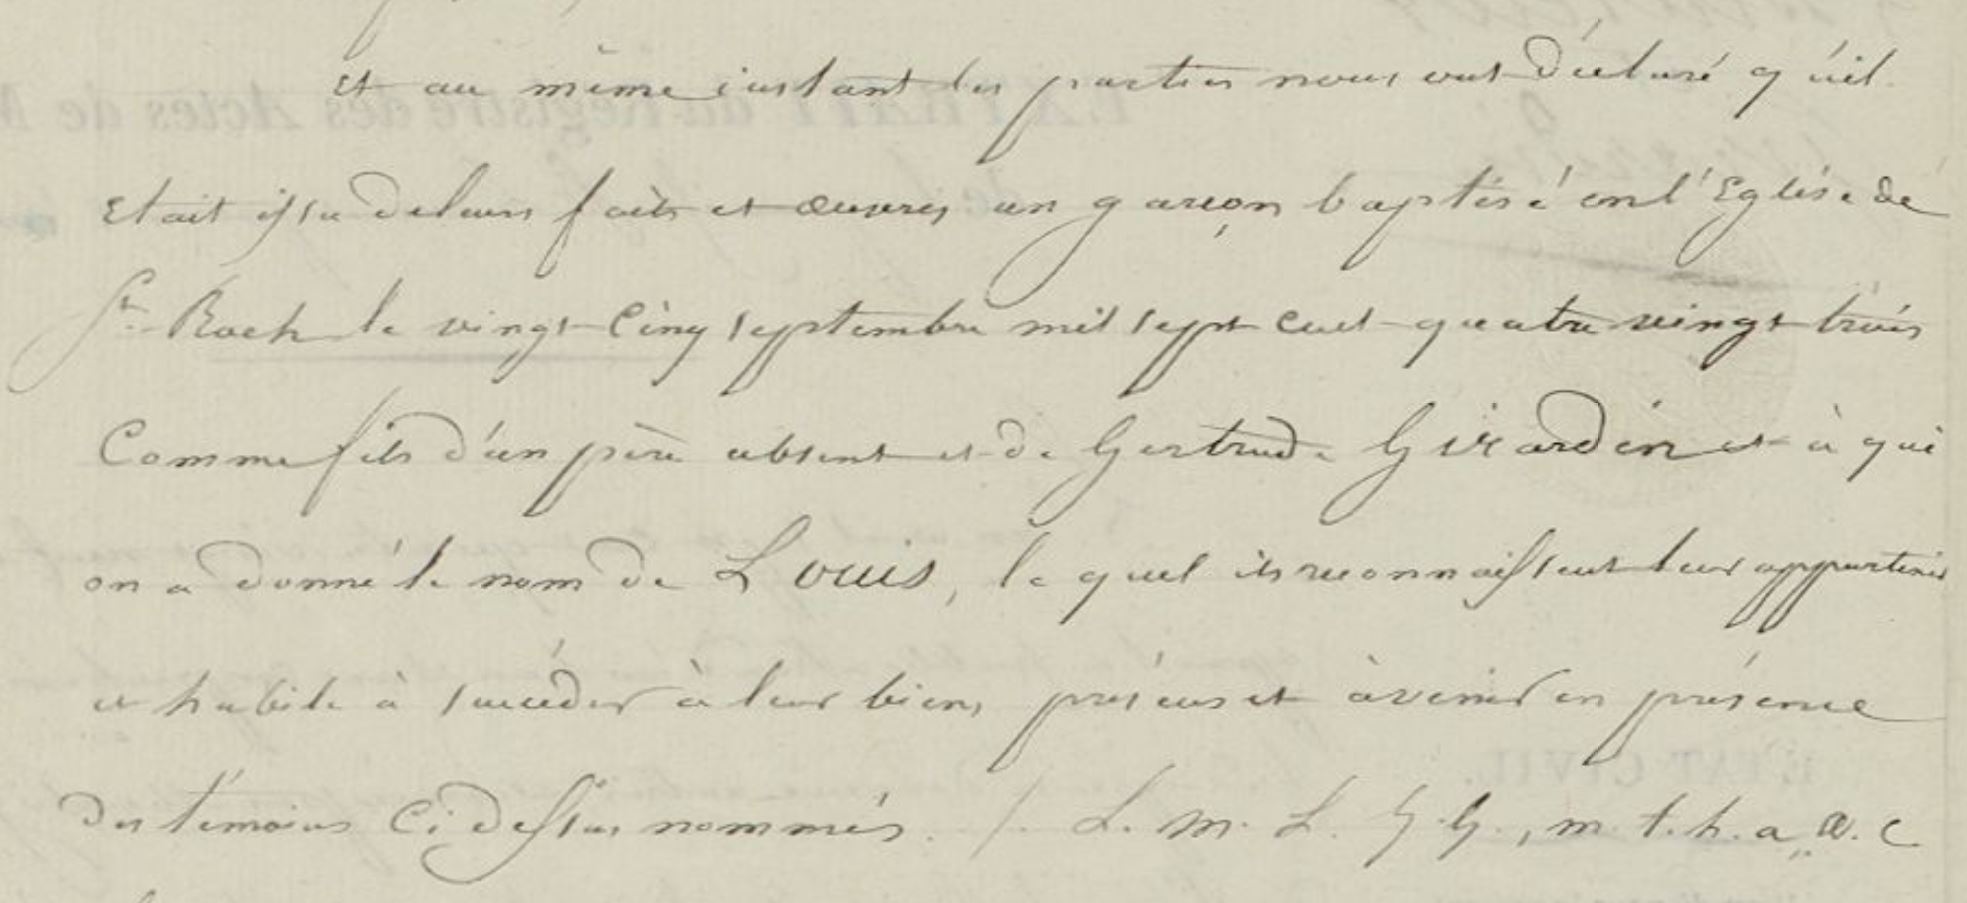 Et au même instant les parties nous ont déclaré q'uil
Etait issu de leurs faits et œuvres un garçon baptisé en l'Eglise de
St. Roch le vingt Cinq septembre mil sept cent quatre vingt trois
Comme fils d'un père absent et de Gertrude Girardin et à qui
on a donné le nom de Louis, le quel ils reconnaissent leur appartenir
et habile à succéder à leur biens présens et àvenir en présence
des témoins Ci dessus nommés. /. L. M. L. G. G., m. t. h. a